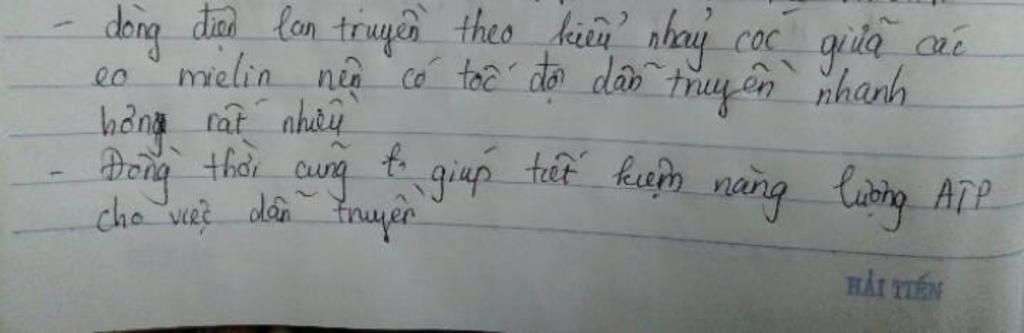 - dòng điện lan truyền theo kiểu nhảy cóc giữa các
eo mielin nên có tốc độ dẫn truyền nhanh
hơn rất nhiều
- Đồng thời cũng t. giúp tiết kiệm năng lượng ATP
cho việc dẫn truyền
HẢI TIẾN